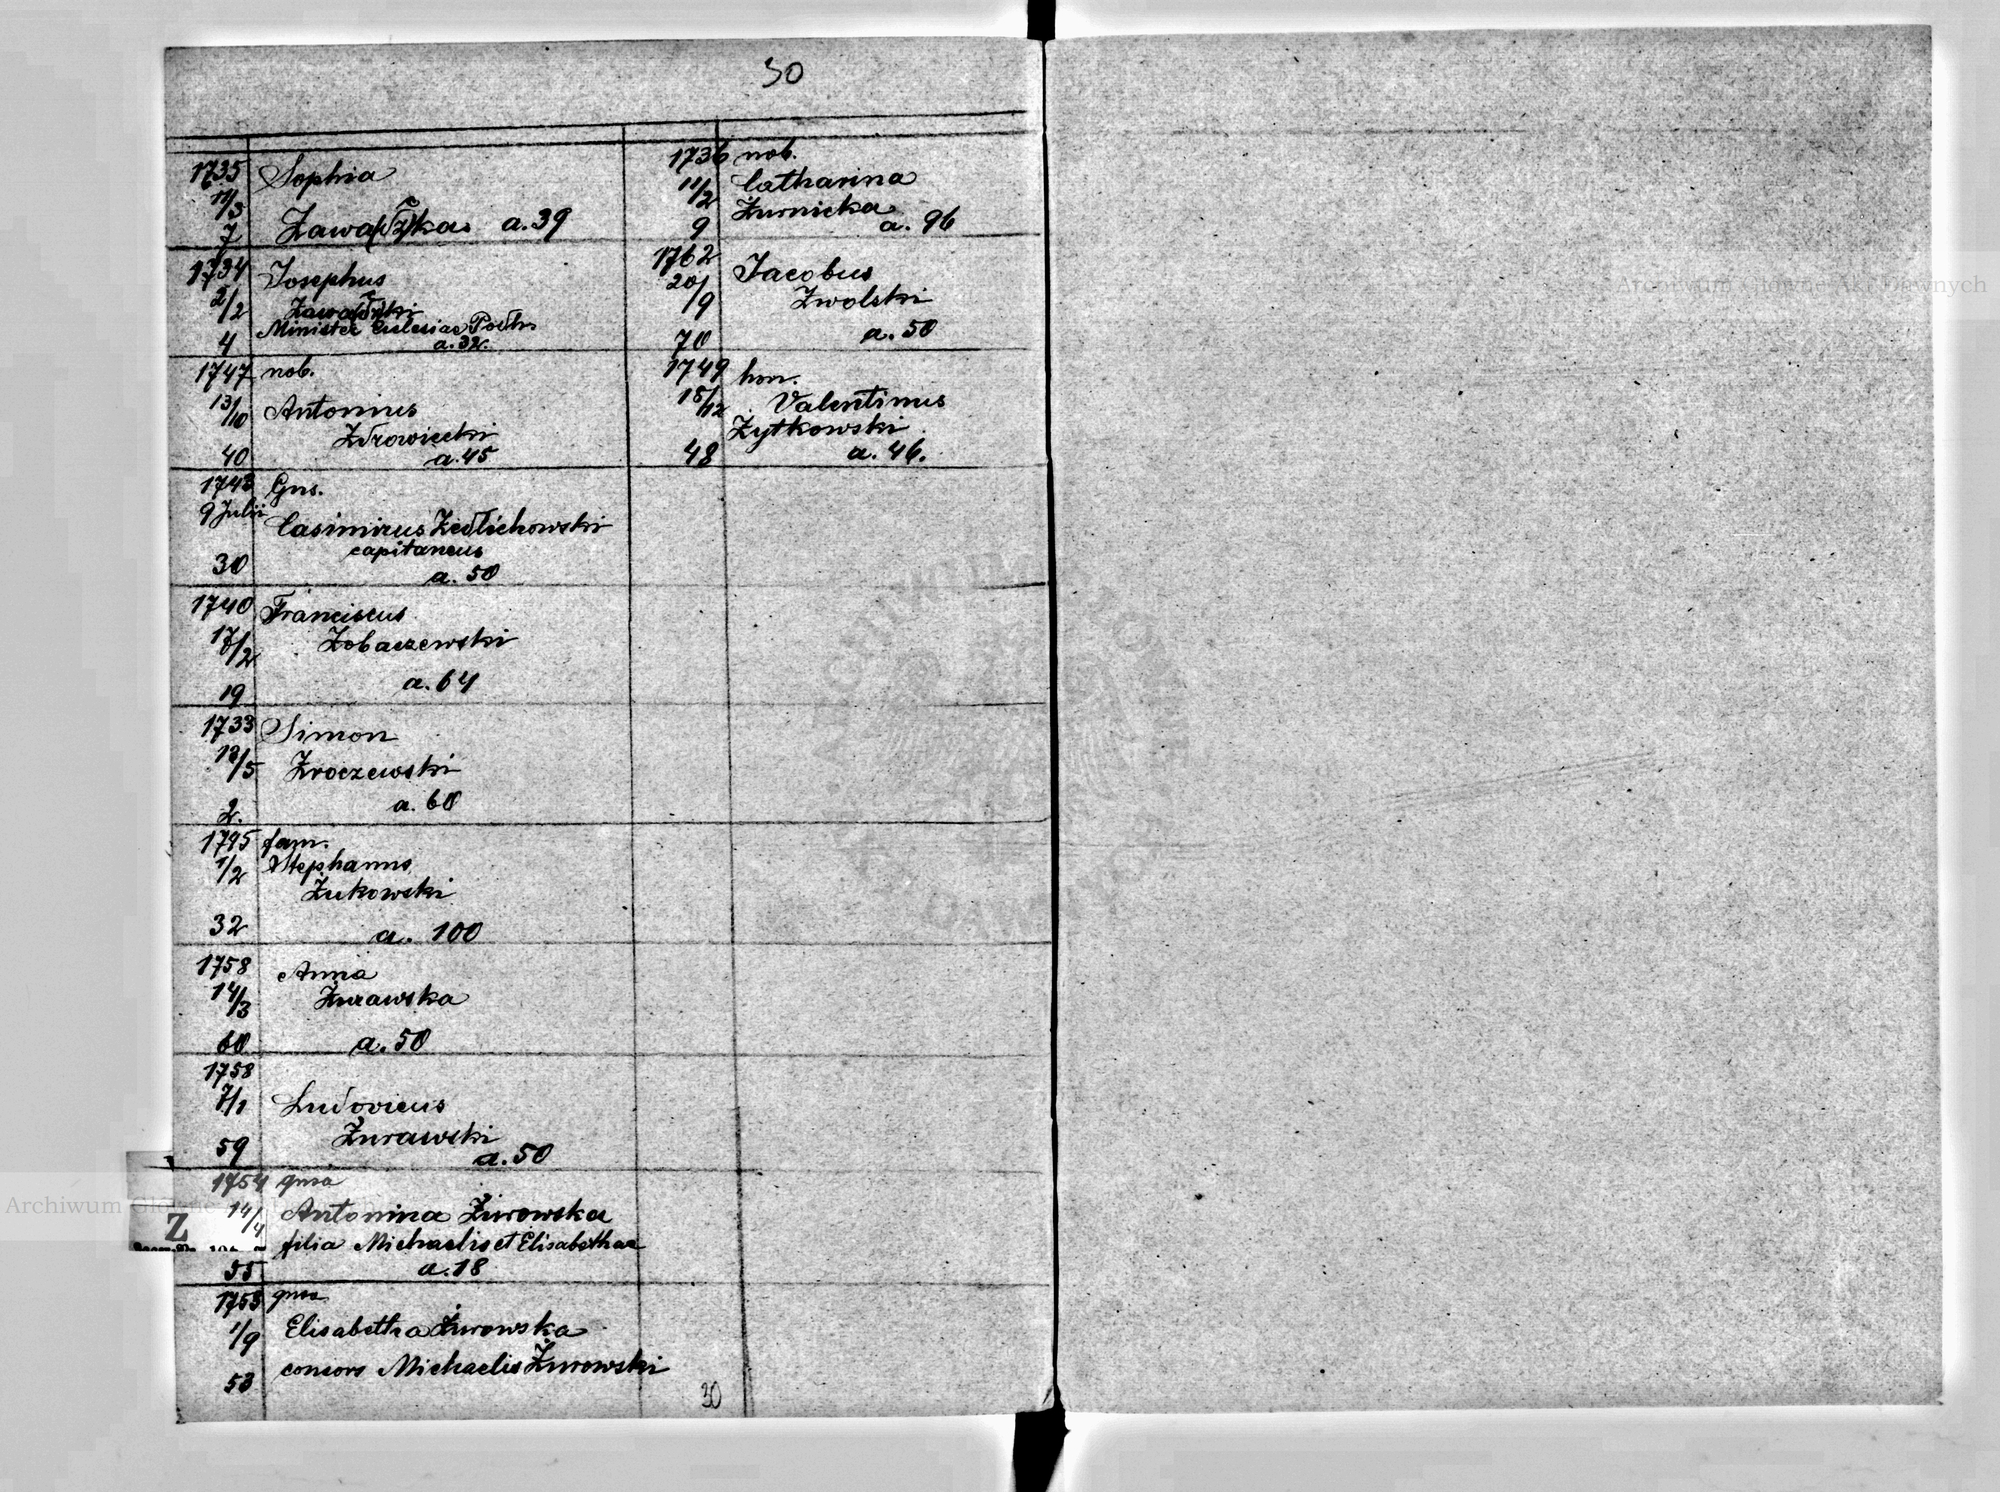 30
1735 Sophia
11/3
7 a. 39
1734 Josephus
2/2
4 Minister Ecclesiae
a. 32.
1747 nob.
13/10 Antonius
Zdrowiecki
40 a. 45
1743 Gns.
9 Julii
Casimirus Zedlichowski
capitaneus
30 a. 50
1740 Franciscus
17/2 Zobaczewski
19 a. 64
1733 Simon
18/5 Zroczewski
2. a. 60
1745 fam.
1/2 Stephanus
Żukowski
32 a. 100
1758 Anna
14/3 Żurawska
60 a. 50
1758
7/1 Ludovicus
59 Żurawski
a. 50
1754 gnsa
14/4 Antonina Żurowska
filia Michaelis et Elisabethae
55 a. 18
1753 gnsa
1/9 Elisabetha Żurowska
53 consors Michaelis Żurowski
1736 nob.
11/2 Catharina
Żurnicka
9 a. 96
1762 Jacobus
20/9 Zwolski
70 a. 50
1749 hon.
15/12 Valentinus
Zytkowski
48 a. 46.
30
Z
Archiwum Główne Akt Dawnych